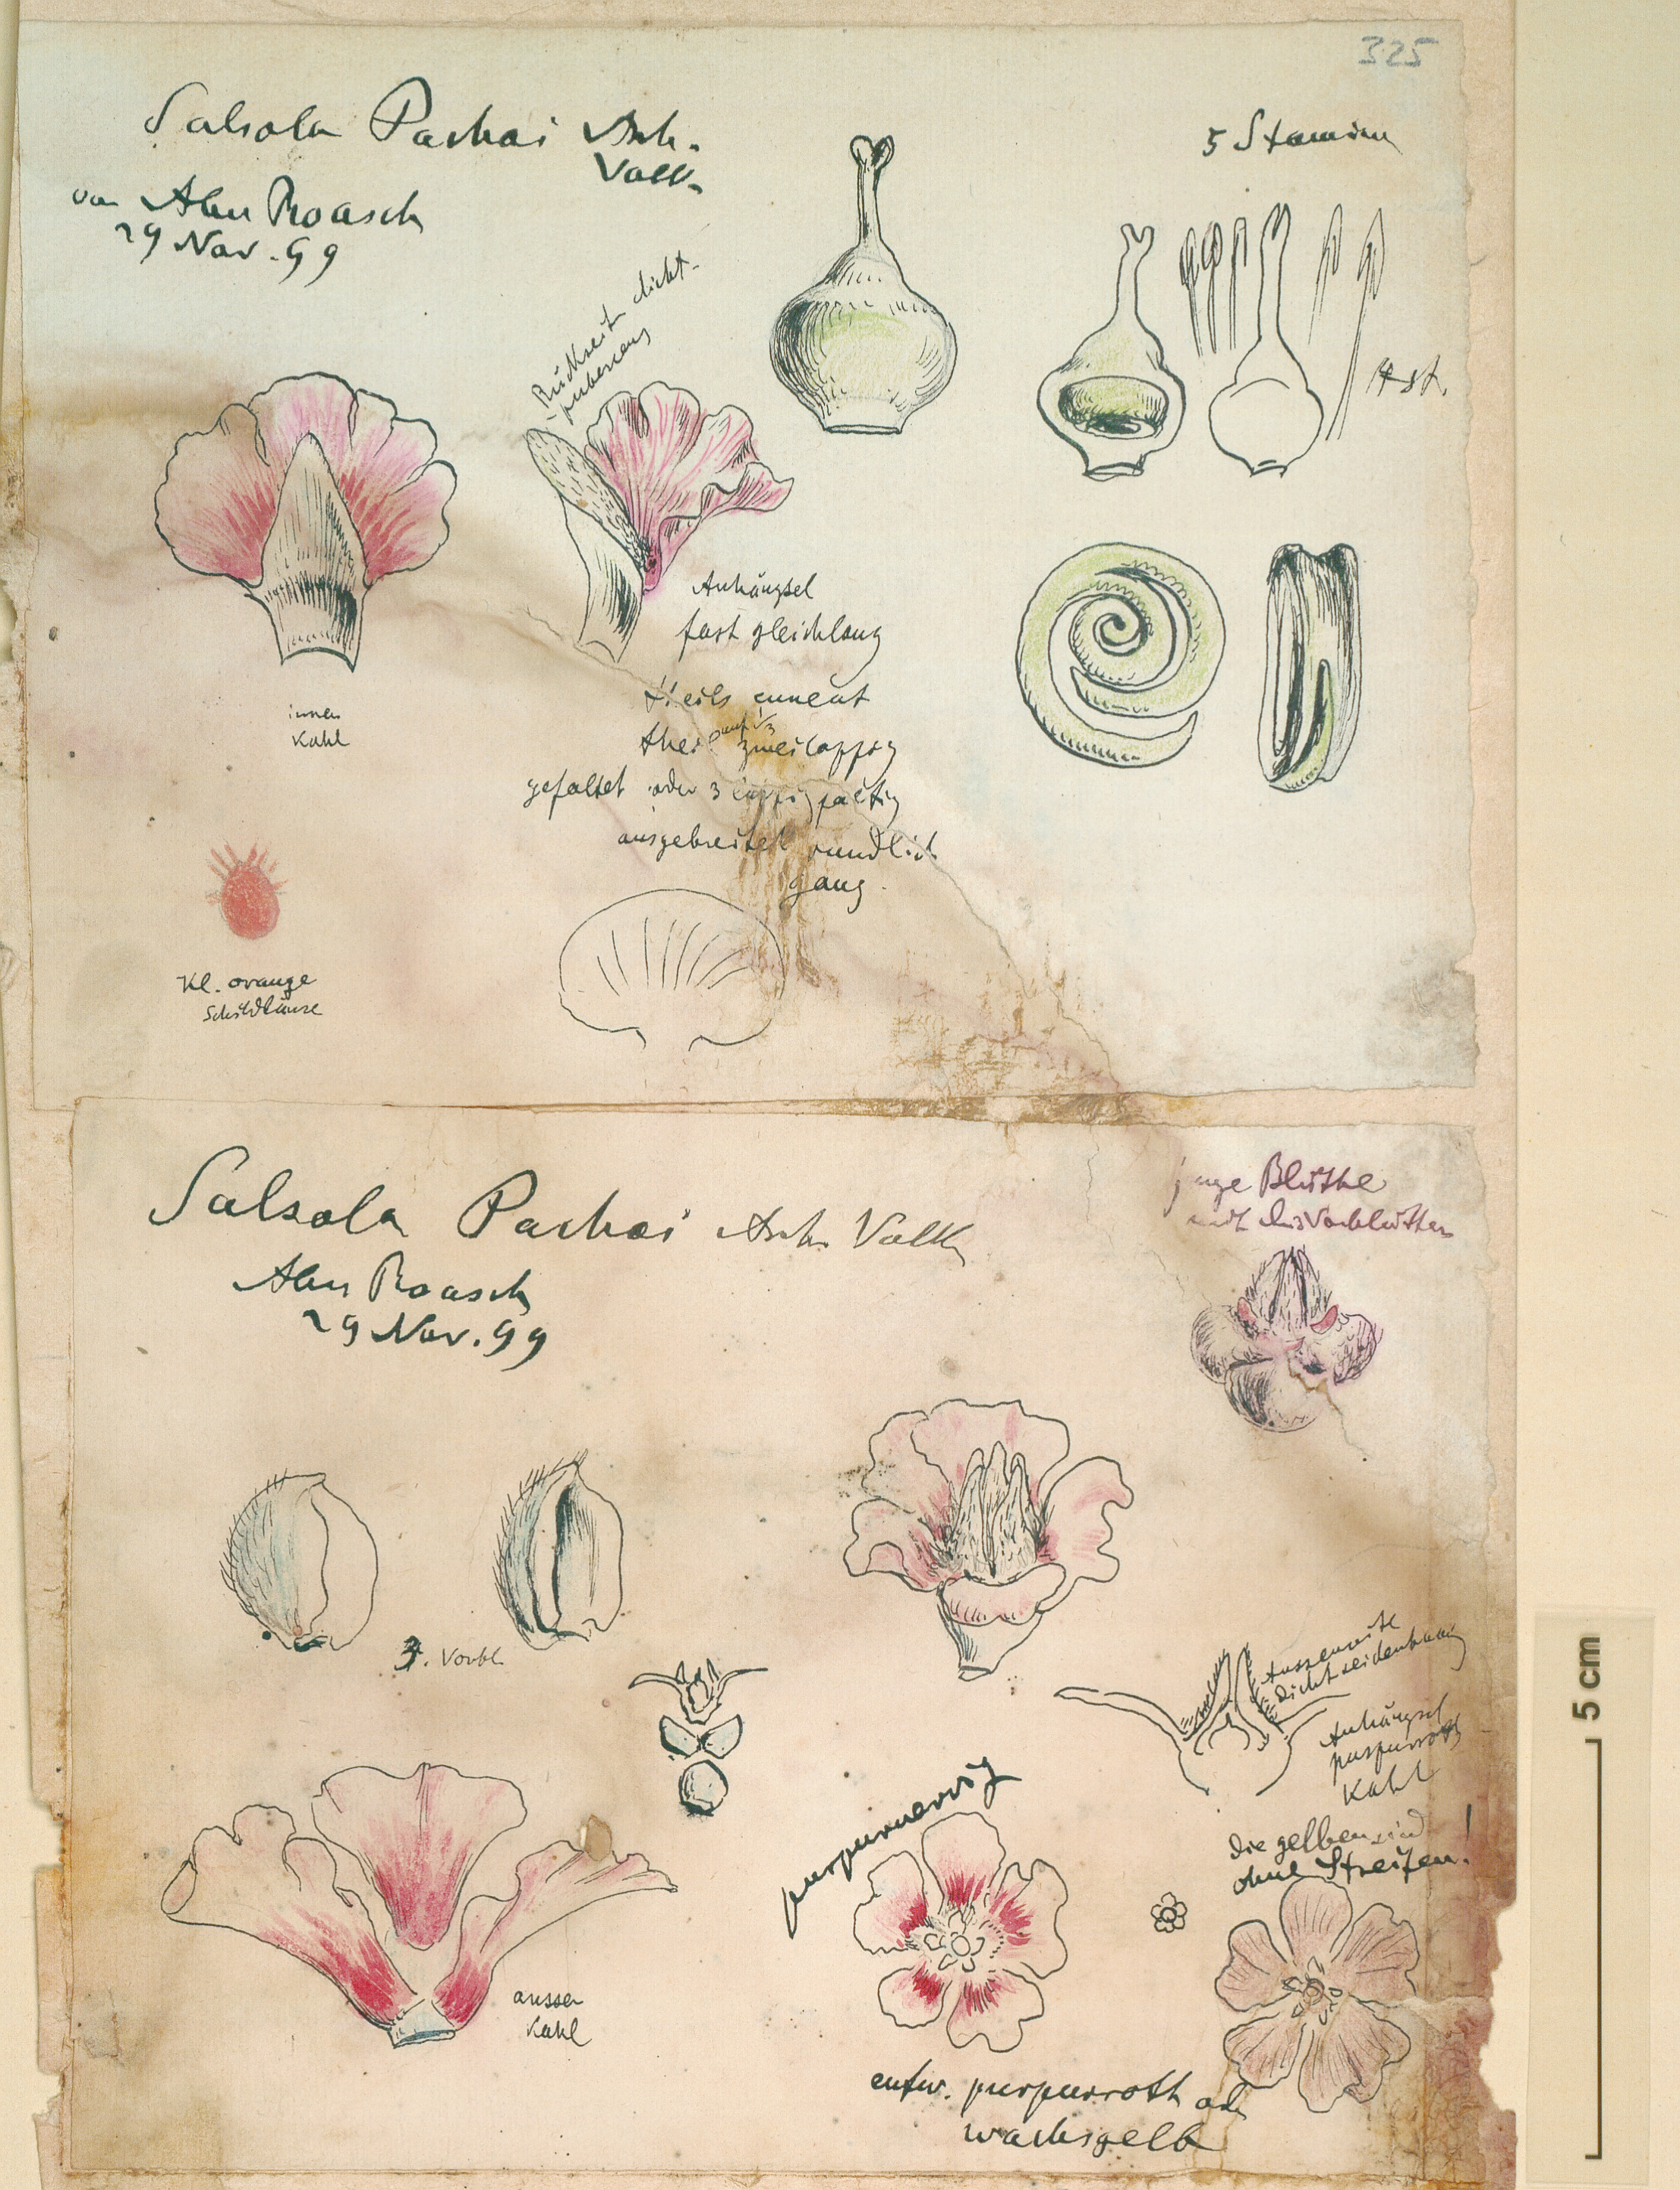 325
Salsola Pachoi Asch.
Volk.
von Abu Roasch
29 Nov. 99
5 Stamina
Rückseite dicht
pubescens
Anhängsel
fast gleichlang
theils cuneat
theils auf 1/3 zweilappig
gefaltet oder 3 lappig faltig
ausgebreitet rundlich
ganz.
innen
Kahl
Kl. orange
Schildläuse
Salsola Pachoi Asch. Volk.
Abu Roasch
29 Nov. 99
junge Blüthe
mit den Vorblättern
3. Vorbl.
Aussenseite
dicht seidenhaarig
Anhängsel
purpurroth
Kahl
purpurnervig
die gelben sind
ohne Streifen!
aussen
Kahl
entw. purpurroth od.
wachsgelb
5 cm